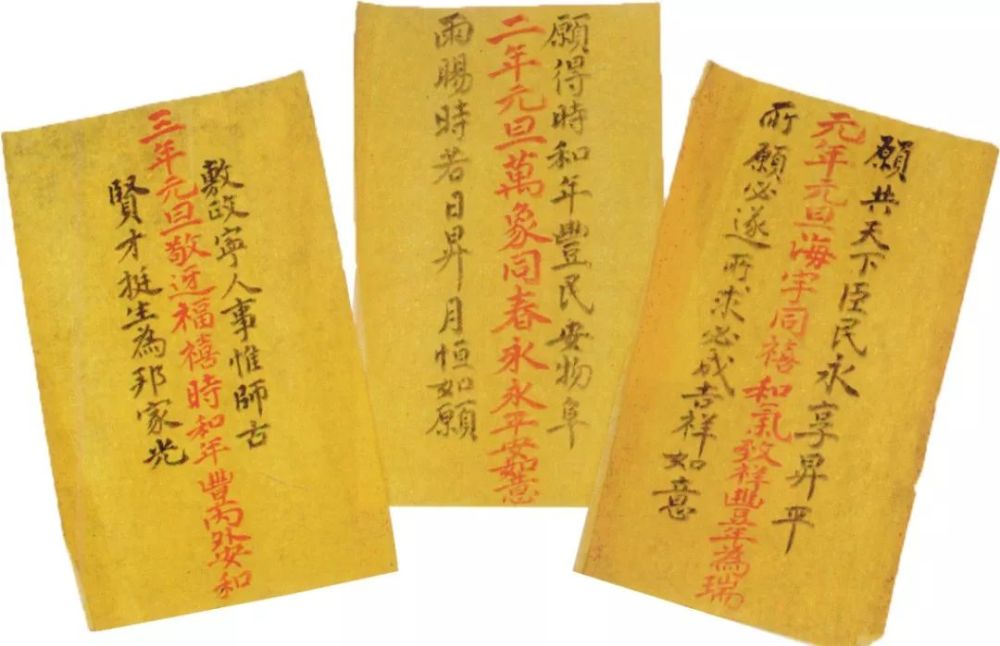 願共天下臣民永享昇平
元年元旦海宇同禧和氣致祥豐年為瑞
所願必遂所求必成吉祥如意
願得時和年豐民安物阜
二年元旦萬象同春永永平安如意
雨賜時若日昇月恒如願
敷政寧人事惟師古
三年元旦敬迓福禧時和年豐內外安和
賢才挺生為邦家光